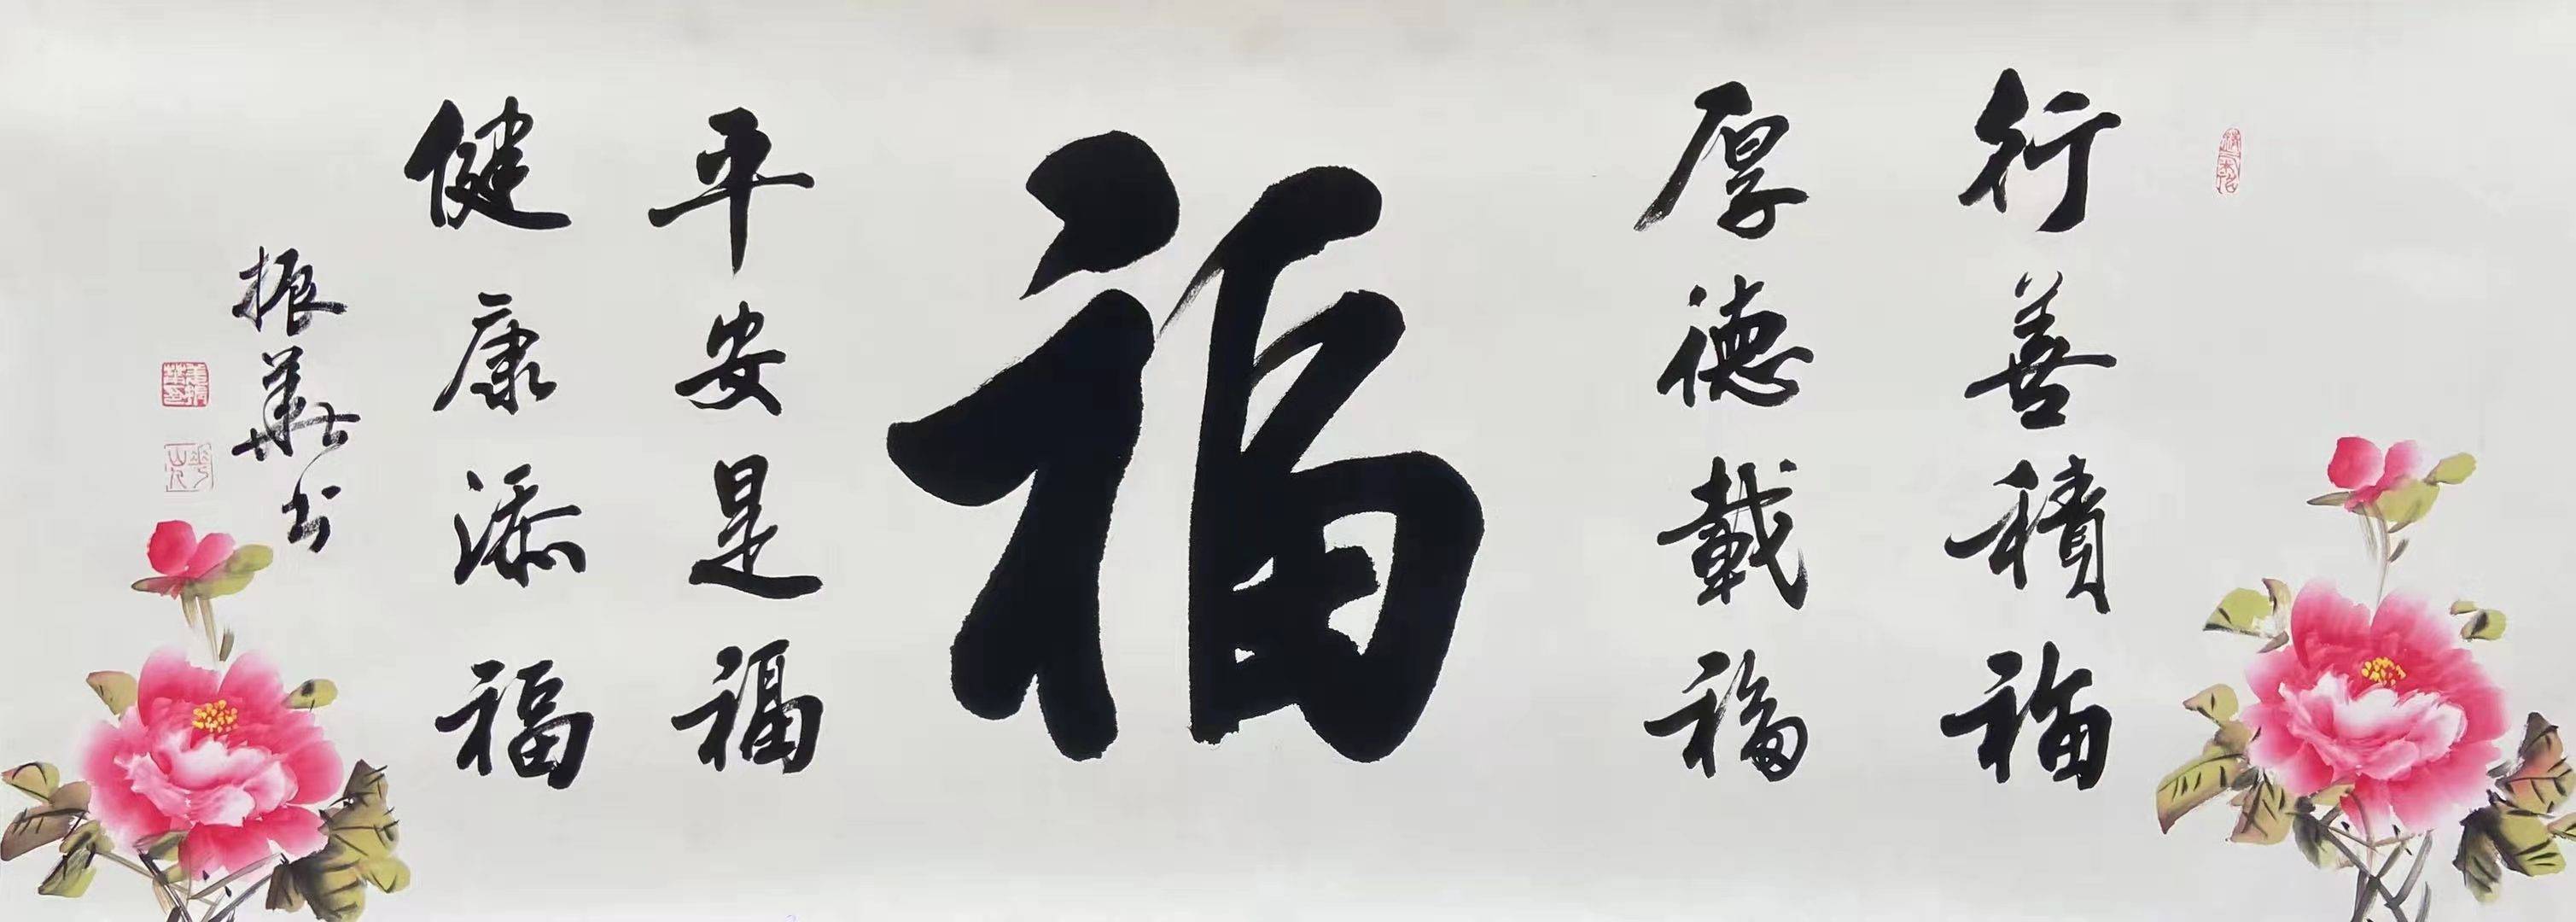 行善積福
厚德載福
福
平安是福
健康添福
振華书